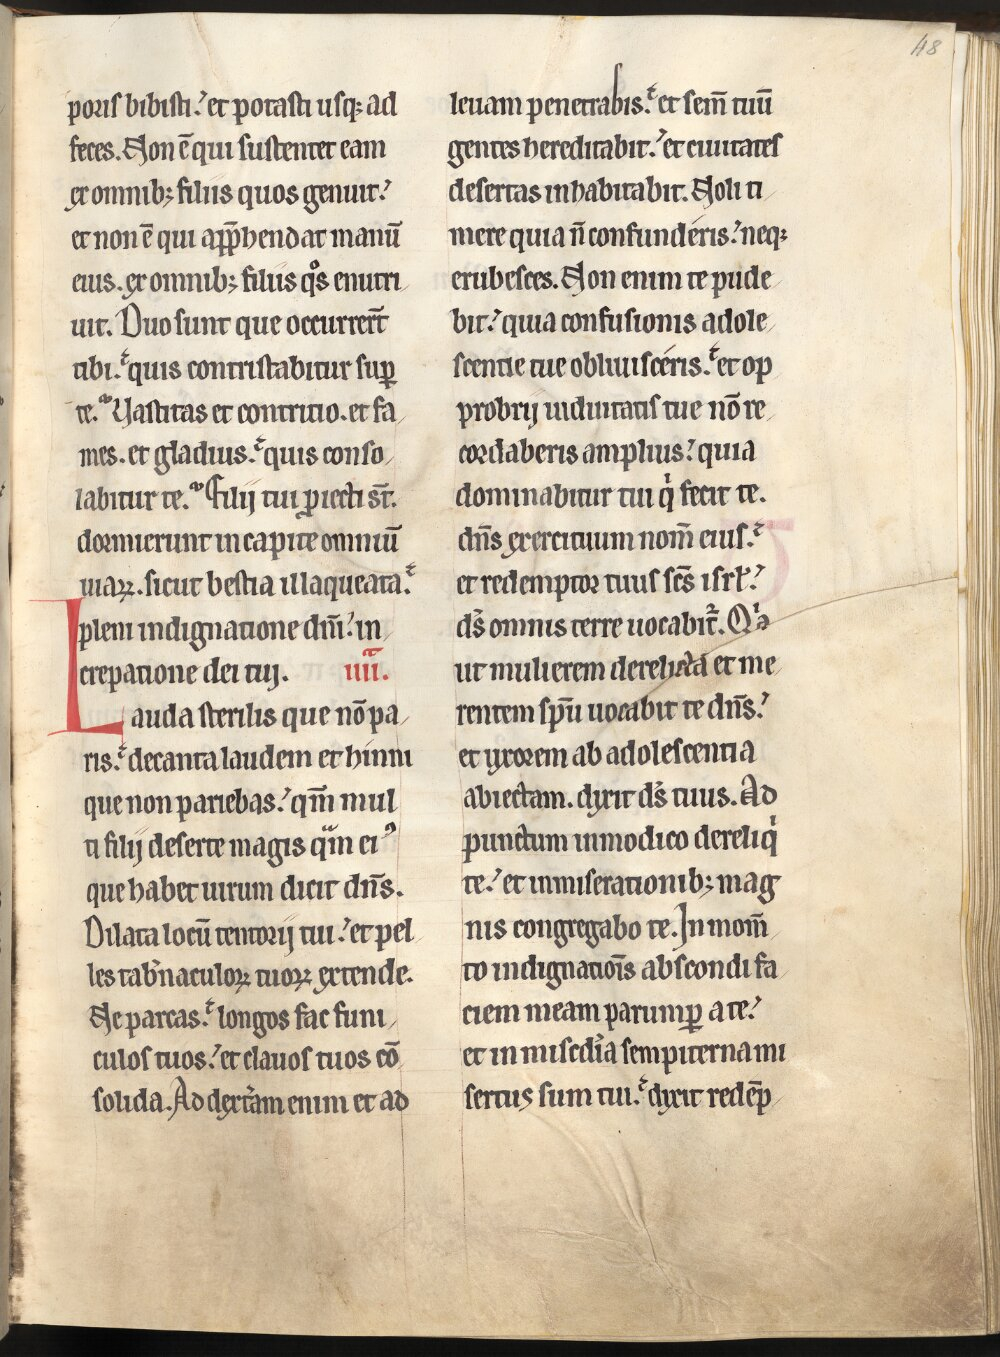 48
poris bibisti. et potasti usq; ad
feces. Non ē qui sustentet eam
ex omnib; filiis quos genuit.
et non ē qui app̄hendat manū
eius. ex omnib; filiis qͦs enutri
uit. Duo sunt que occurrer̄t
tibi. quis contristabitur sup̄
te. Vastitas et contritio. et fa
mes. et gladius. quis conso
labitur te. Filij tui ꝓiecti st̄.
dormierunt in capite omniū
uiaꝝ. sicut bestia illaqueata.
pleni indignatione dn̄i. in
crepatione dei tuj. iiii.
Lauda sterilis que nō pa
ris. decanta laudem et hinni
que non pariebas. qm̄ mul
ti filij deserte magis qͣm ei ꝰ
que habet uirum dicit dn̄s.
Dilata locū tentorij tui. et pel
les tab̄naculoꝝ tuoꝝ extende.
Ne parcas. longos fac funi
culos tuos. et clauos tuos cō
solida. Ad dext̄am enim et ad
leuam penetrabis. et sem̄ tuū
gentes hereditabit. et ciuitates
desertas inhabitabit. Noli ti
mere quia n̄ confunderis. neq;
erubesces. Non enim te pude
bit. quia confusionis adole
scentie tue obliuisceris. et op
probrij uiduitatis tue nō re
cordaberis amplius. quia
dominabitur tui qͥ fecit te.
dn̄s exercituum nom̄ eius.
et redemptor tuus sc̄s isrł.
ds̄ omnis terre uocabit᷑. Qͥa
ut mulierem derelictā et me
rentem sp̄u uocabit te dn̄s.
et uxorem ab adolescentia
abiectam. dixit ds̄ tuus. Ad
punctum in modico dereliqͥ
te. et in miserationib; mag
nis congregabo te. In mom̄
to indignatiōis abscondi fa
ciem meam parump̄ a te.
et in miscd̄ia sempiterna mi
sertus sum tui. dixit redēp